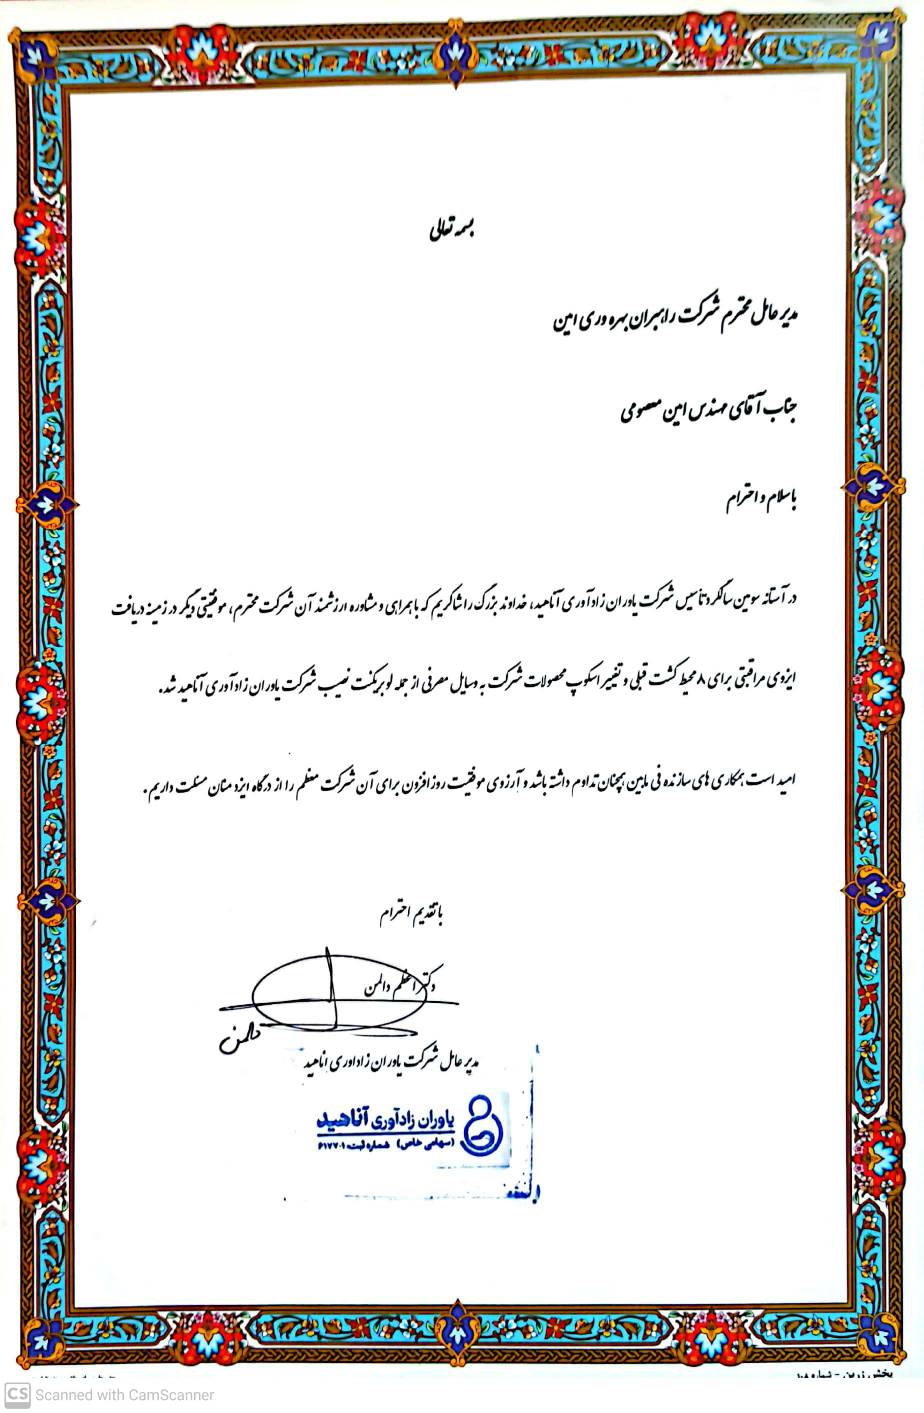 بسمه تعالی
مدیر عامل محترم شرکت راهبران بهره وری امین
جناب آقای مهندس امین معصومی
باسلام و احترام
در آستانه سومین سالگرد تأسیس شرکت یاوران زادآوری آناهید، خداوند بزرگ را شاکریم که با همراهی و مشاوره ارزشمند آن شرکت محترم، موفقیتی دیگر در زمینه دریافت
ایزوی مراقبتی برای ۸ محیط کشت قبلی و تغییر اسکوپ محصولات شرکت به وسایل مصرفی از جمله لوبریکنت نصیب شرکت یاوران زادآوری آناهید شد.
امید است همکاری های سازنده فی مابین همچنان تداوم داشته باشد و آرزوی موفقیت روزافزون برای آن شرکت معظم را از درگاه ایزد منان مسئلت داریم.
با تقدیم احترام
دکتر اعظم دالمن
دالمن
مدیر عامل شرکت یاوران زاداوری اناهید
یاوران زادآوری آناهید
(سهامی خاص) شماره ثبت: ۶۱۷۷۰۱
پخش زرین - شماره ۱۰۸
CS Scanned with CamScanner